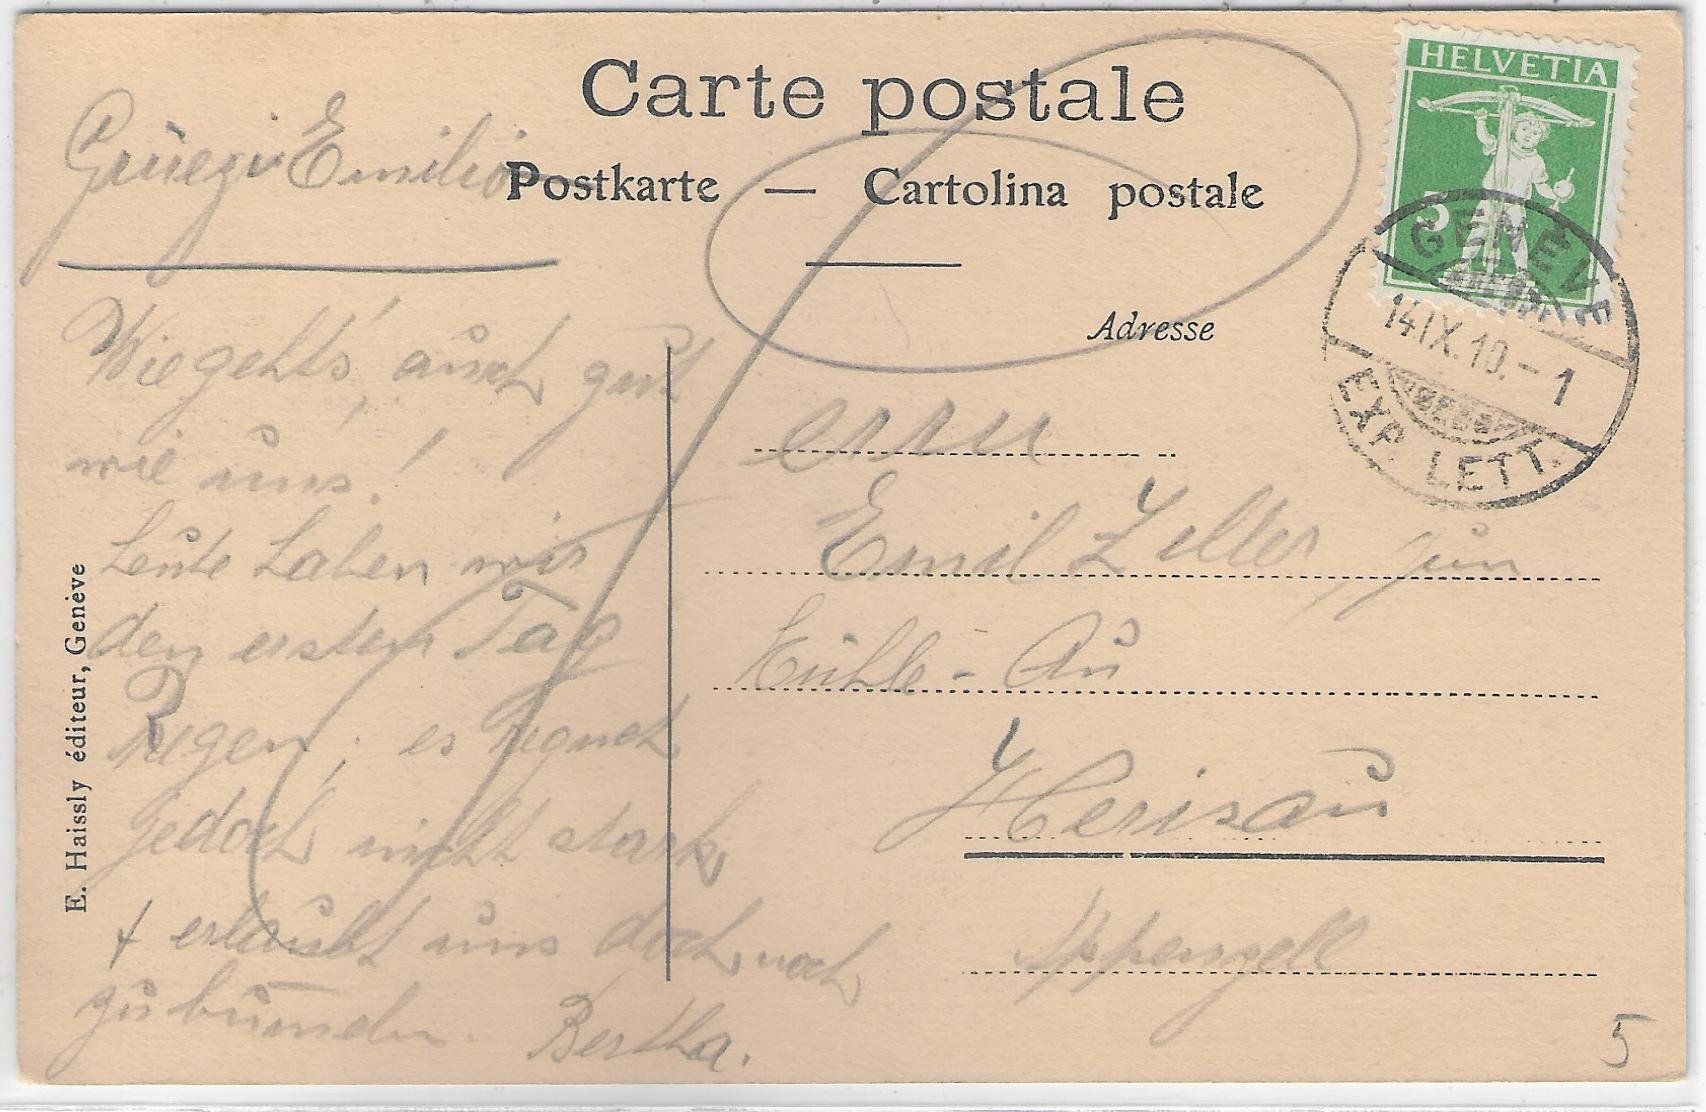 Carte postale
Postkarte — Cartolina postale
Adresse
HELVETIA
5
GENÈVE
14.IX.10.-1
EXP. LETT.
Grüezi Emilio
Wie geht's, auch gut
wie uns!
Heute haben wir
den ersten Tag
Regen, es regnet
jedoch nicht stark
+ erlaubt uns doch noch
zu bummeln.
Bertha.
Emil Zeller, jun
Mühle-Au
Herisau
Appenzell
E. Haissly éditeur, Genève
5